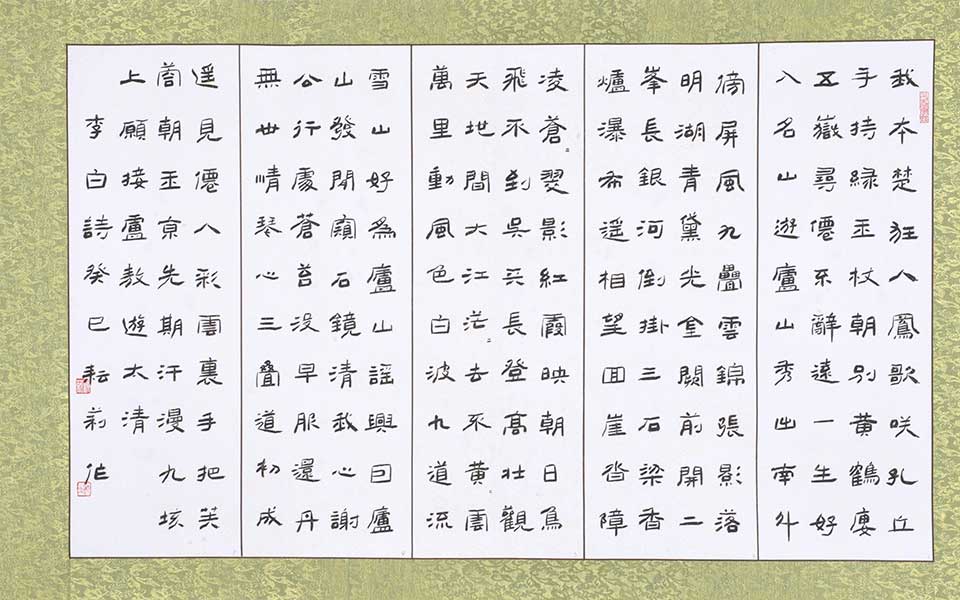 我本楚狂人鳳歌咲孔丘
手持緑玉杖朝別黄鶴廔
五嶽尋僊不辭遠一生好
入名山遊廬山秀出南斗
傍屏風九疊雲錦張影落
明湖青黛光金闕前開二
峯長銀河倒掛三石梁香
爐瀑布遥相望回崖沓障
凌蒼〻翠影紅霞映朝日鳥
飛不到呉天長登高壮觀
天地間大江茫〻去不黄雲
萬里動風色白波九道流
雪山好為廬山謡興因廬
山發閒窺石鏡清我心謝
公行處蒼苔没早服還丹
無世情琴心三疊道初成
遥見僊人彩雲裏手把芙
蓉朝玉京先期汗漫九垓
上願接盧敖遊太清
李白詩癸巳耘莉作